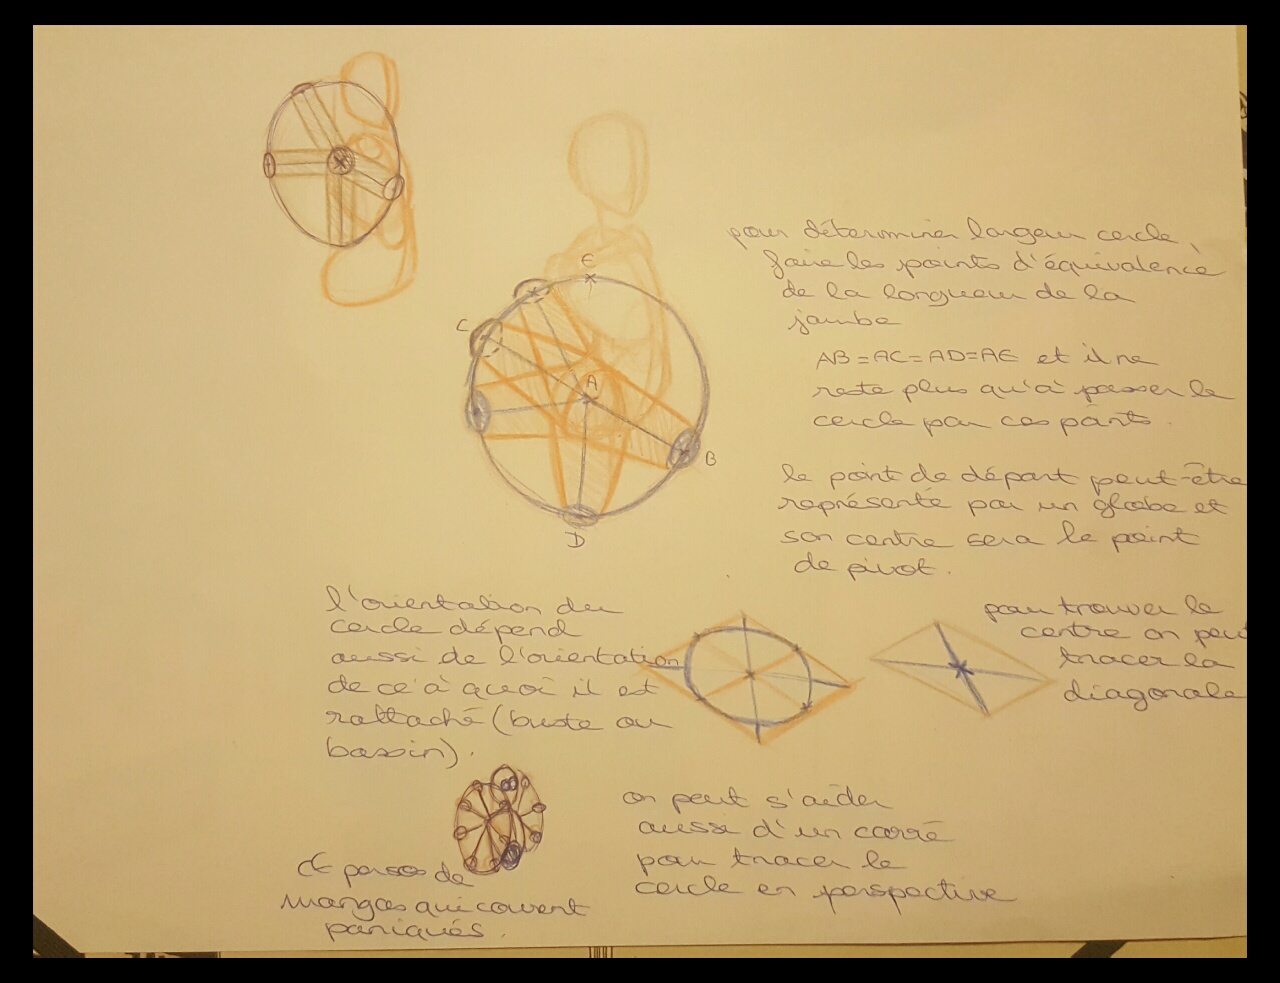 E
C
A
B
D
pour déterminer largeur cercle,
faire les points d'équivalence
de la longueur de la
jambe
AB=AC=AD=AE et il ne
reste plus qu'à passer le
cercle par ces points.
le point de départ peut-être
représenté par un globe et
son centre sera le point
de pivot.
l'orientation du
cercle dépend
aussi de l'orientation
de ce à quoi il est
rattaché (buste ou
bassin).
pour trouver le
centre on peut
tracer la
diagonale
on peut s'aider
aussi d'un carré
pour tracer le
cercle en perspective
persos de
mangas qui courent
paniqués.